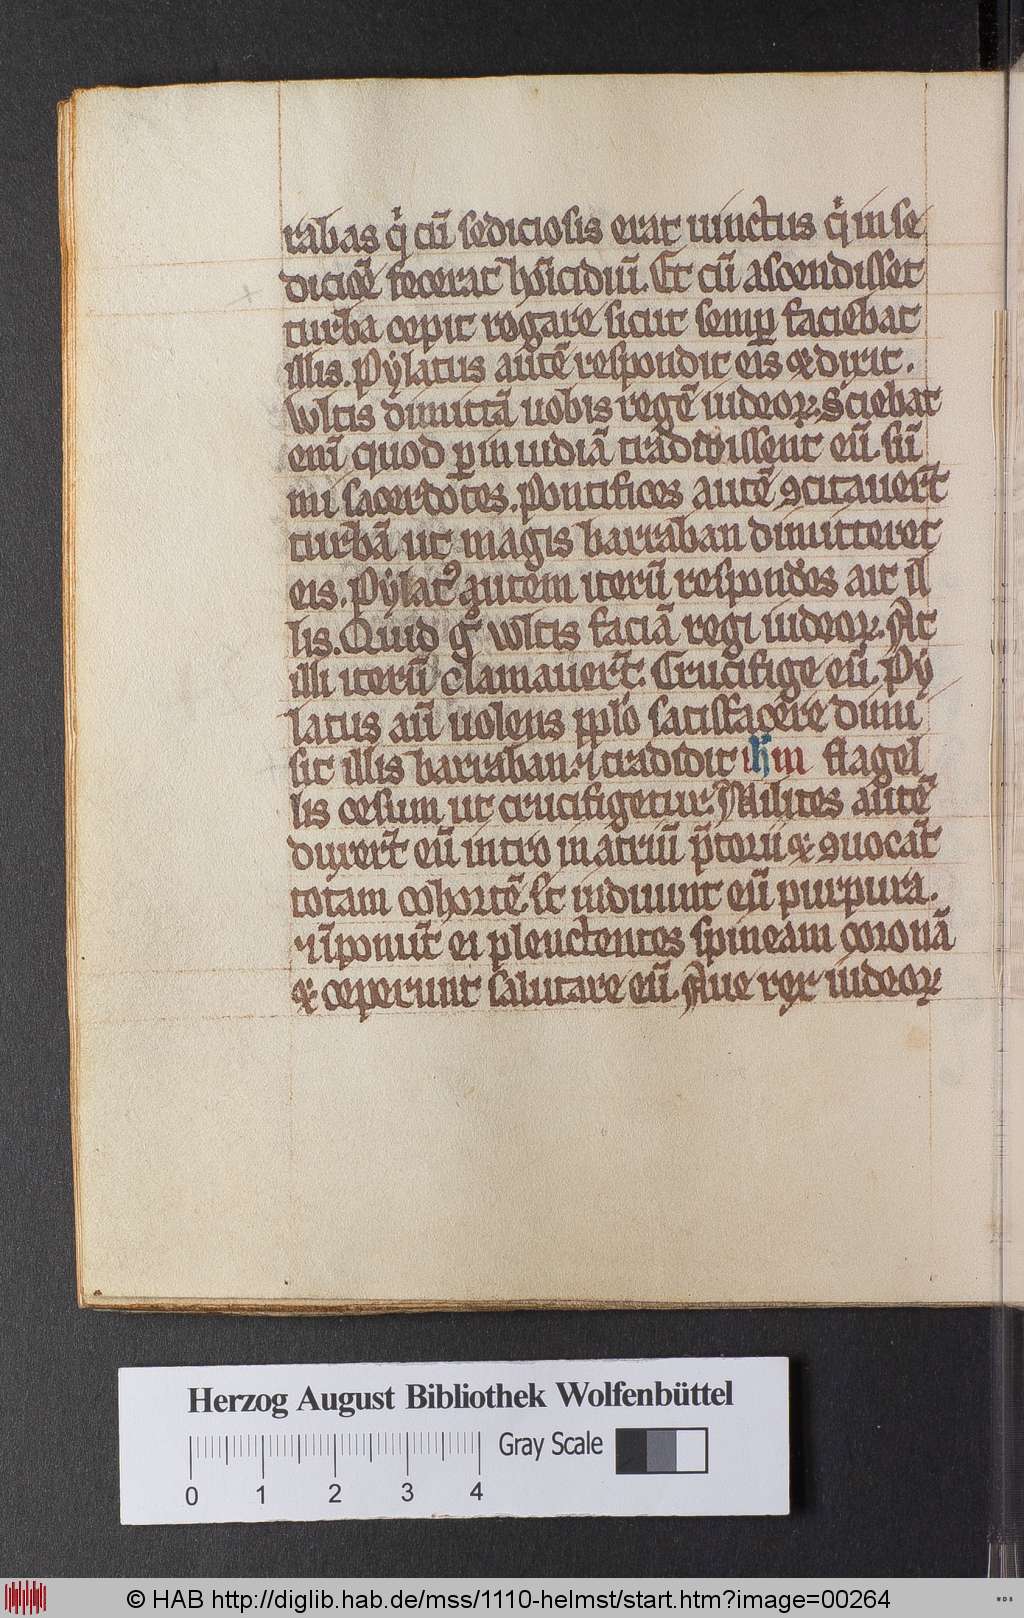 rabas q̇ cū sediciosis erat uinctus q̇ in se
dicioē fecerat hōicidiū. Et cū ascendisset
turba cepit rogare sicut semꝑ faciebat
illis. Pylatus autē respondit eis ⁊ dixit.
Wltis dimittā uobis regē iudeoꝝ. Sciebat
enī quod ꝑ inuidiā tradidissent eū. sū
mi sacerdotes. Pontifices autē ꝯcitauert̄
turbā ut magis barraban dimitteret
eis. Pylatꝰ autem iterū respondēs ait il
lis. Quid gͦ wltis faciā regi iudeoꝝ. At
illi iterū clamauert̄. Crucifige eū. Py
latus aū uolens pplo satisfacere dimi
sit illis barraban. ⁊ tradidit ihm flagel
lis cesum ut crucifigetur. Milites autē
duxert̄ eū intro in atriū p̄torii ⁊ ꝯuocāt
totam cohortē. et induunt eū purpura.
⁊ īponūt ei plectentes spineam coronā
⁊ ceperunt salutare eū. Aue rex iudeoꝝ
Herzog August Bibliothek Wolfenbüttel
0 1 2 3 4 Gray Scale
© HAB http://diglib.hab.de/mss/1110-helmst/start.htm?image=00264